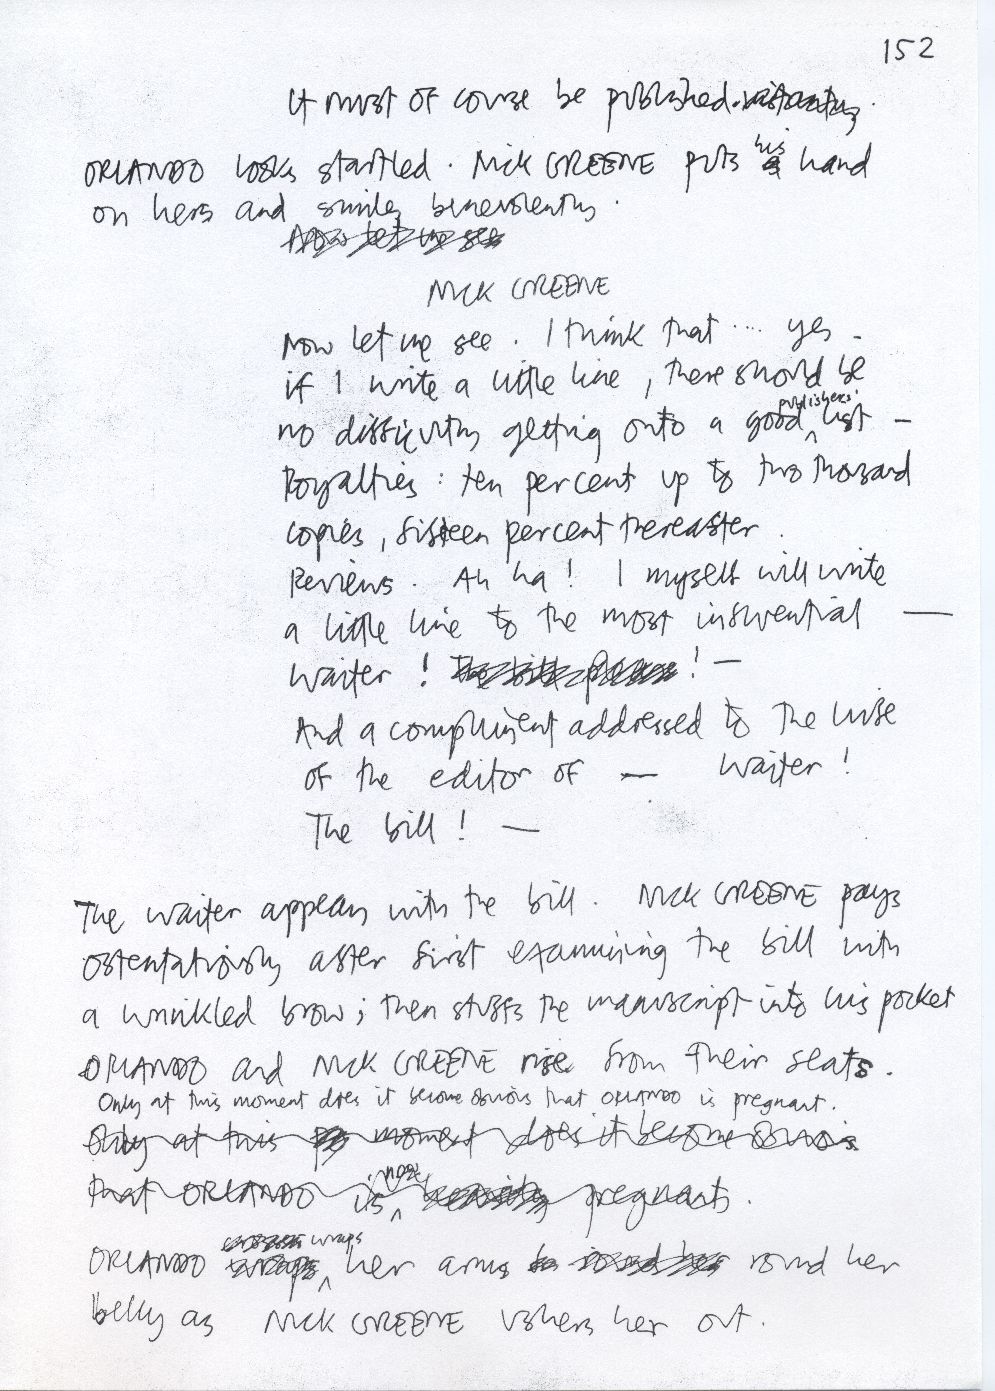 152
It must of course be published. instantly.
ORLANDO looks startled. NICK GREENE puts his hand
on hers and smiles benevolently.
Now let me see
NICK GREENE
Now let me see. I think that .... yes -
if I write a little line, there should be
no difficulty getting onto a good publishers' list -
Royalties: ten percent up to two thousand
copies, fifteen percent thereafter.
Reviews. Ah ha! I myself will write
a little line to the most influential —
Waiter! !—
And a compliment addressed to the wife
of the editor of — Waiter!
The bill! —
The waiter appears with the bill. NICK GREENE pays
ostentatiously after first examining the bill with
a wrinkled brow; then stuffs the manuscript into his pocket
ORLANDO and NICK GREENE rise from their seats.
Only at this moment does it become obvious that ORLANDO is pregnant.
Only at this moment does it become obvious
that ORLANDO is pregnant.
ORLANDO wraps her arms round her
belly as NICK GREENE ushers her out.